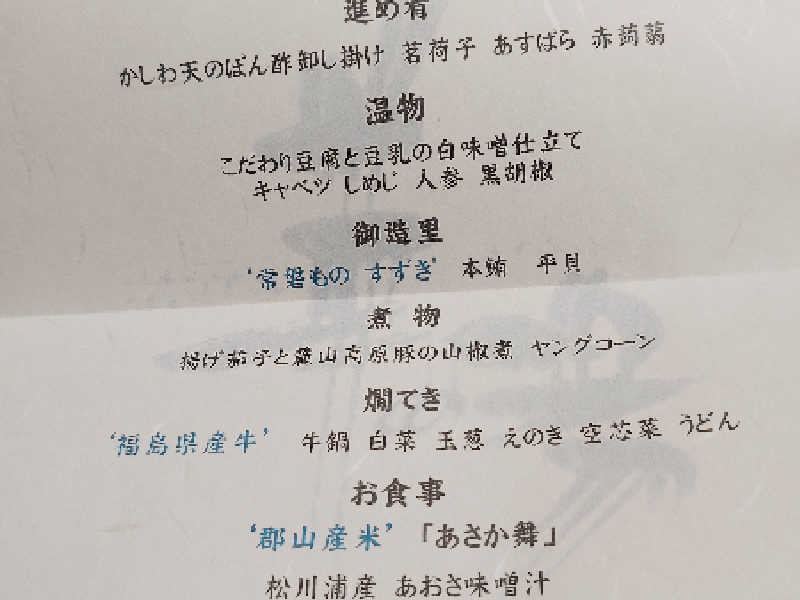 進め肴
かしわ天のぽん酢卸し掛け 茗荷子 あすぱら 赤蒟蒻
温物
こだわり豆腐と豆乳の白味噌仕立て
キャベツ しめじ 人参 黒胡椒
御造里
‘常磐もの すずき’ 本鮪 平貝
煮物
揚げ茄子と麓山高原豚の山椒煮 ヤングコーン
燗てき
‘福島県産牛’ 牛鍋 白菜 玉葱 えのき 空芯菜 うどん
お食事
‘郡山産米’ 「あさか舞」
松川浦産 あおさ味噌汁